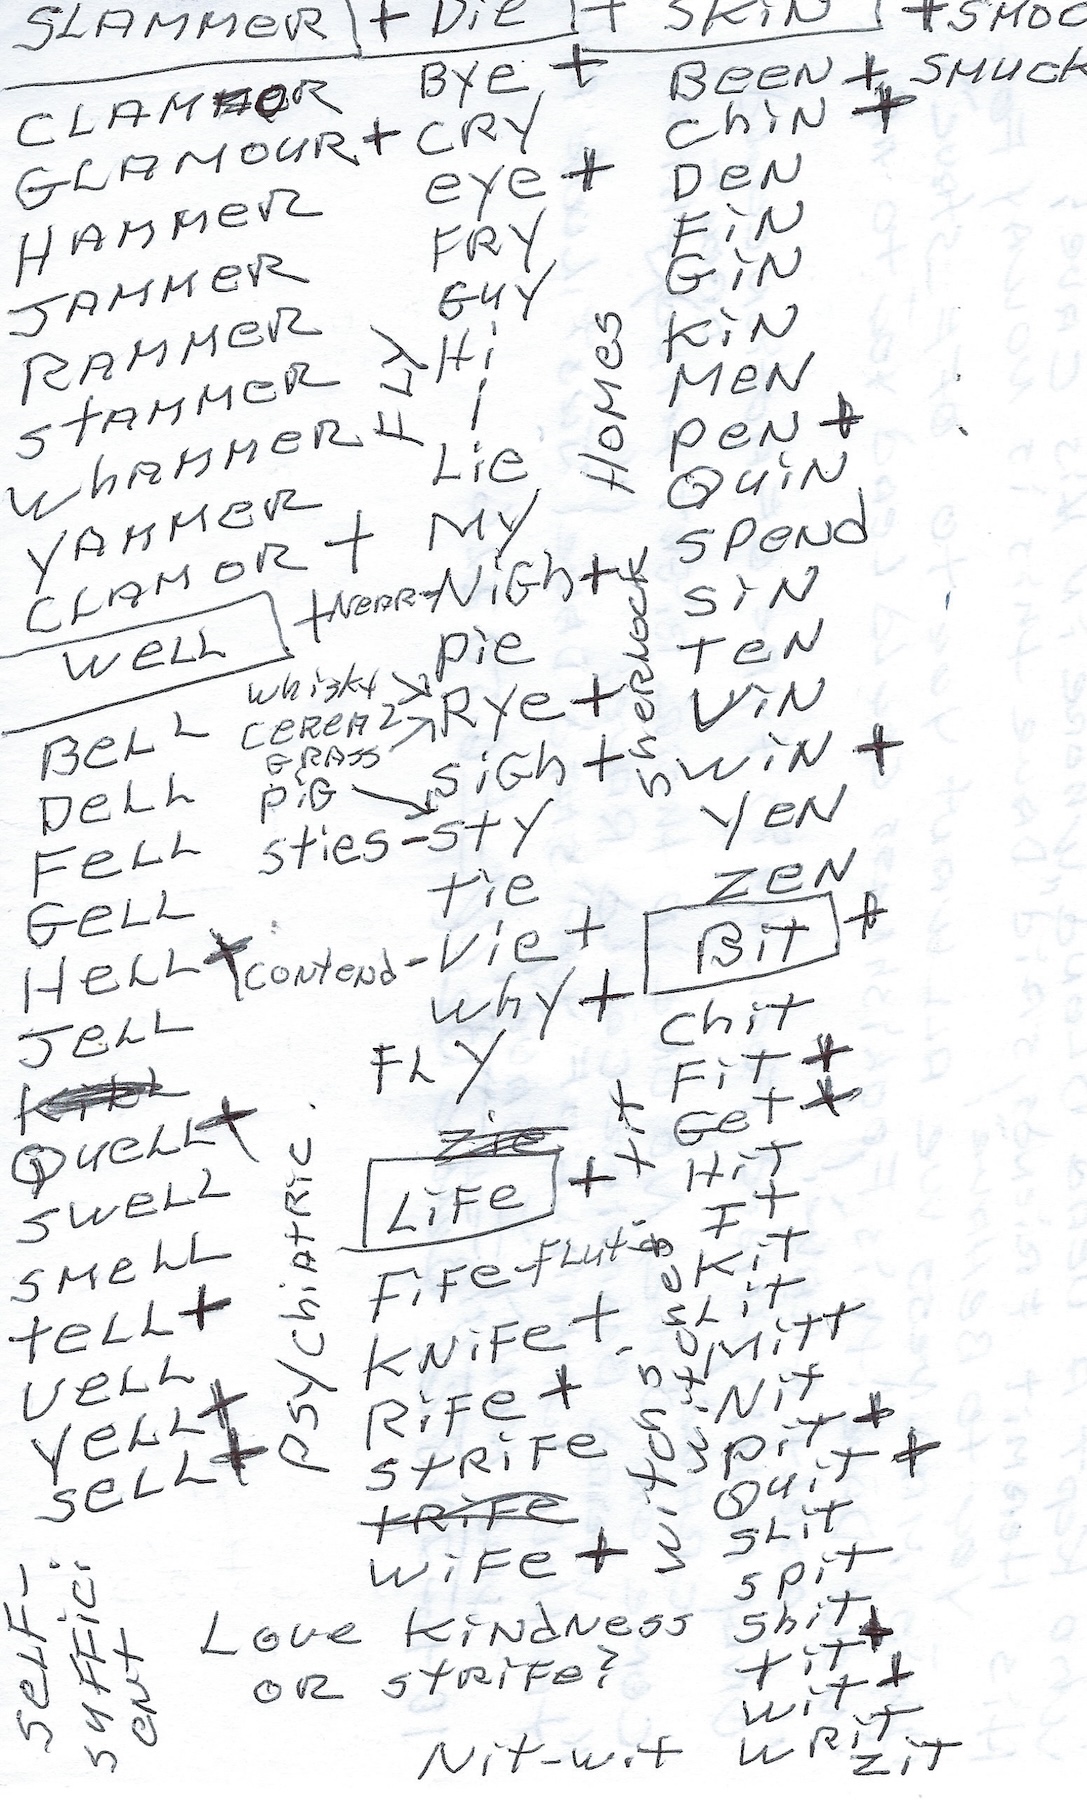 SLAMMER + DIE + SKIN + SMOC
CLAMOR
GLAMOUR +
HAMMER
JAMMER
RAMMER
STAMMER
WHAMMER
YAMMER
CLAMOR +
WELL
BELL
DELL
FELL
GELL
HELL +
JELL
QUELL +
SWELL
SMELL
TELL +
VELL
YELL +
SELL +
SELF-
SUFFICI
ENT
BYE +
CRY
EYE +
FRY
GUY
Hi
I
LIE
MY
+ NEAR - NIGH +
PIE
WHISKY
CEREAL
GRASS
RYE +
SIGH +
PIG
STIES - STY
TIE
CONTEND - VIE +
WHY +
FLY
FLY
ZIE
PSYCHIATRIC.
LIFE +
FIFE - FLUTE
KNIFE +
RIFE +
STRIFE
TRIFE
WIFE +
LOVE KINDNESS
OR STRIFE?
NIT-WIT
HOMES
SHERLOCK
BEEN + SMUCK
CHIN +
DEN
FIN
GIN
KIN
MEN
PEN +
QUIN
SPEND
SIN
TEN
VIN
WIN +
YEN
ZEN
BIT +
CHIT
FIT +
GET +
HIT
IT
KIT
SLIT
MITT
NIT
PIT +
QUIT +
SLIT
SPIT
SHIT +
TIT
WIT +
WRIT
ZIT
TIT